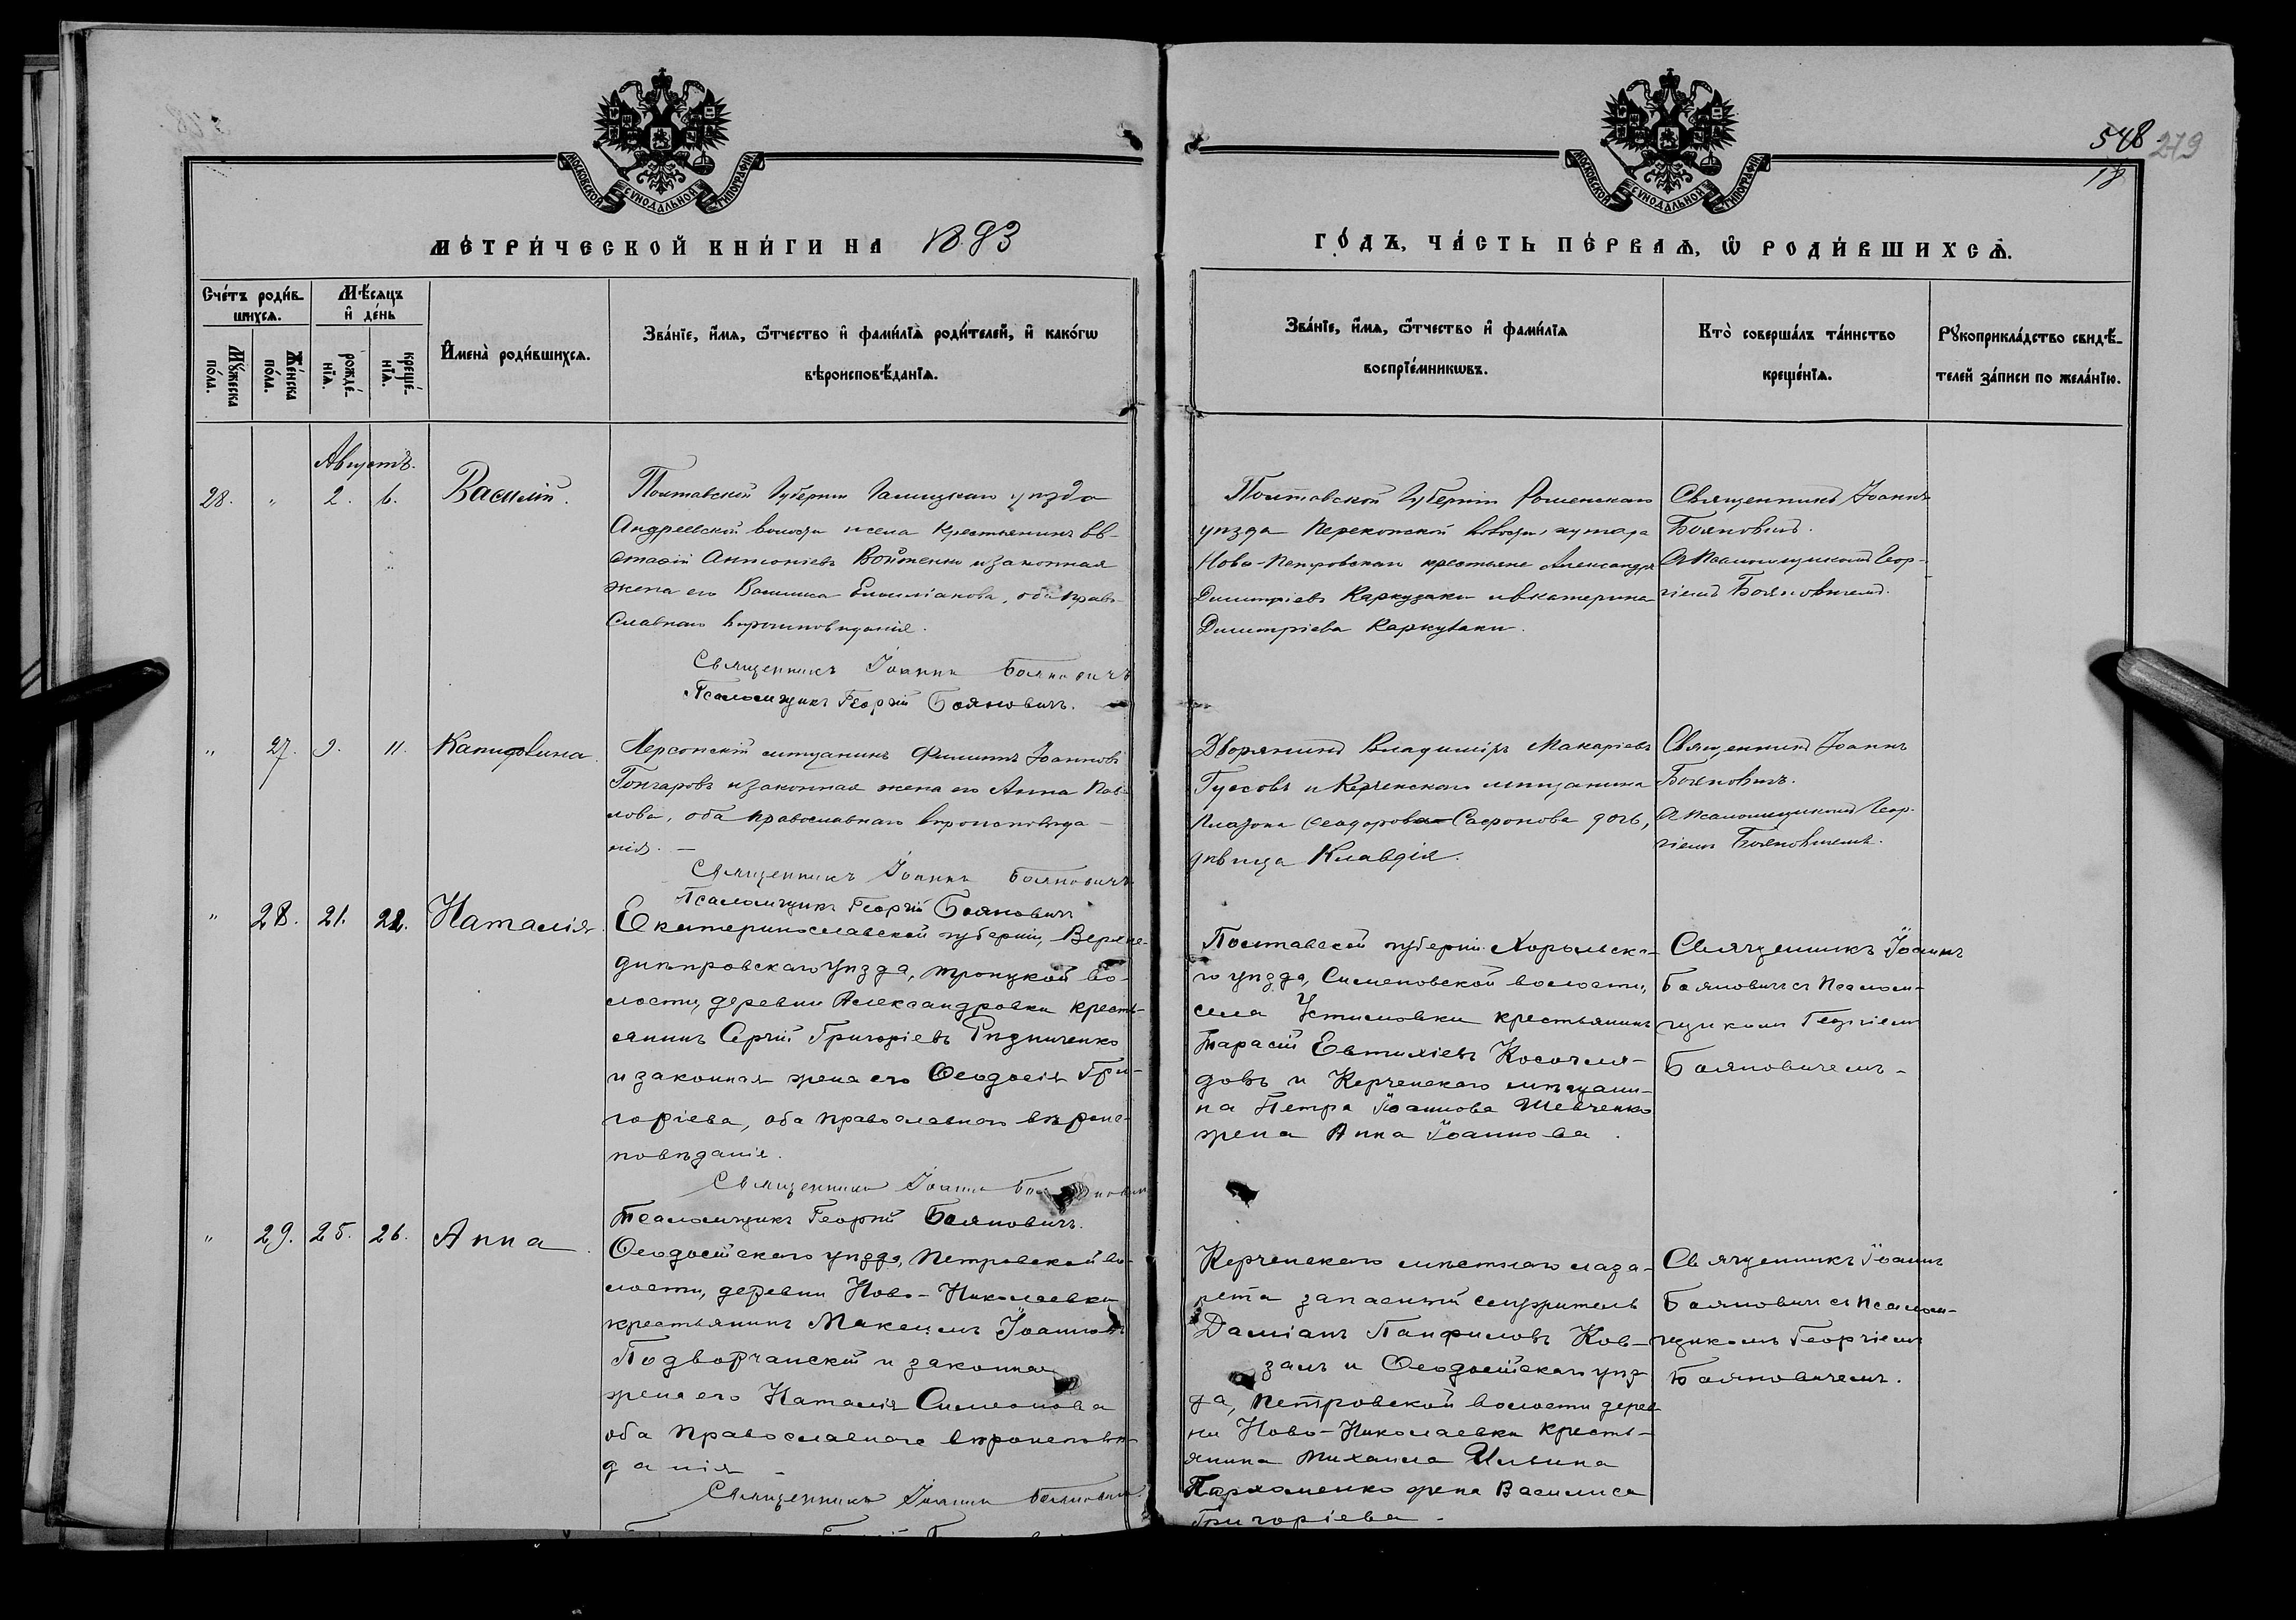 548 279
18
МОСКОВСКОЙ СѴНОДАЛЬНОЙ ТИПОГРАФІИ
МОСКОВСКОЙ СѴНОДАЛЬНОЙ ТИПОГРАФІИ
МЕТРИ́ЧЕСКОЙ КНИ́ГИ НА 1893
ГО́ДЪ, ЧА́СТЬ ПЕ́РВАѦ, Ѿ РОДИ́ВШИХСѦ.
Сче́тъ роди́в-
шихсѧ.
Мѣсѧцъ
и де́нь
Мꙋ́жеска
по́ла.
Же́нска
по́ла.
рожде́-
нїѧ.
креще́-
нїѧ.
И҆мена̀ роди́вшихсѧ.
Зва́нїе, и҆́мѧ, ѻ҆́тчество и҆ фами́лїѧ роди́телей, и҆ како́гѡ
вѣроисповѣ́данїѧ.
Зва́нїе, и҆́мѧ, ѻ҆́тчество и҆ фами́лїѧ
воспрїе́мникѡвъ.
Кто̀ соверша́лъ та́инство
креще́нїѧ.
Рꙋкоприкла́дство свидѣ́-
телей за́писи по жела́нїю.
Августъ.
28. " 2. 6. Василій.
Полтавской Губерніи уѣзда
Андреевской волости крестьянинъ Ев-
стафій Антоніевъ Войтенко и законная
жена его Василиса Емиліанова, оба право-
славнаго вѣроисповѣданія.
Священникъ Іоаннъ Бояновичъ
Псаломщикъ Георгій Бояновичъ.
Полтавской Губерніи Роменскаго
уѣзда Перекопской волости, хутора
Ново-Петровскаго крестьяне Александръ
Димитріевъ и Екатерина
Димитріева
Священникъ Іоаннъ
Бояновичъ.
съ Псаломщикомъ Геор-
гіемъ Бояновичемъ.
" 27. 9. 11. Капитолина.
Херсонскій мѣщанинъ Филиппъ Іоанновъ
Гончаровъ и законная жена его Анна Пав-
лова, оба православнаго вѣроисповѣда-
нія. —
Священникъ Іоаннъ Бояновичъ
Псаломщикъ Георгій Бояновичъ
Дворянинъ Владиміръ Макаріевъ
Гуссовъ и Керченскаго мѣщанина
Платона Ѳеодорова Сафонова дочь,
дѣвица Клавдія.
Священникъ Іоаннъ
Бояновичъ.
съ Псаломщикомъ Геор-
гіемъ Бояновичемъ.
" 28. 21. 22. Наталія.
Екатеринославской губерніи, Верхне-
днѣпровскаго уѣзда, Троицкой во-
лости, деревни Александровки кресть-
янинъ Сергій Григоріевъ Рѣзниченко
и законная жена его Ѳеодосія Гри-
горіева, оба православнаго вѣроис-
повѣданія.
Священникъ Іоаннъ Бояновичъ
Псаломщикъ Георгій Бояновичъ.
Полтавской губерніи Хорольска-
го уѣзда, Семеновской волости,
села Устимовки крестьянинъ
Тарасій Евтихіевъ
довъ и Керченскаго мѣщани-
на Петра Іоаннова Шевченко
жена Анна Іоаннова.
Священникъ Іоаннъ
Бояновичъ съ Псалом-
щикомъ Георгіемъ
Бояновичемъ.
" 29. 25. 26. Анна.
Ѳеодосійскаго уѣзда, Петровской во-
лости, деревни Ново-Николаевки
крестьянинъ Максимъ Іоанновъ
Подворчанскій и законная
жена его Наталія Симеонова
оба православнаго вѣроисповѣ-
данія —
Священникъ Іоаннъ Бояновичъ
Керченскаго мѣстнаго лаза-
рета запасный служитель
Даміанъ Панфиловъ Ков-
залъ и Ѳеодосійскаго уѣз-
да, Петровской волости дерев-
ни Ново-Николаевки кресть-
янина Михаила Ильина
Пархоменко жена Василиса
Григоріева.
Священникъ Іоаннъ
Бояновичъ съ Псалом-
щикомъ Георгіемъ
Бояновичемъ.